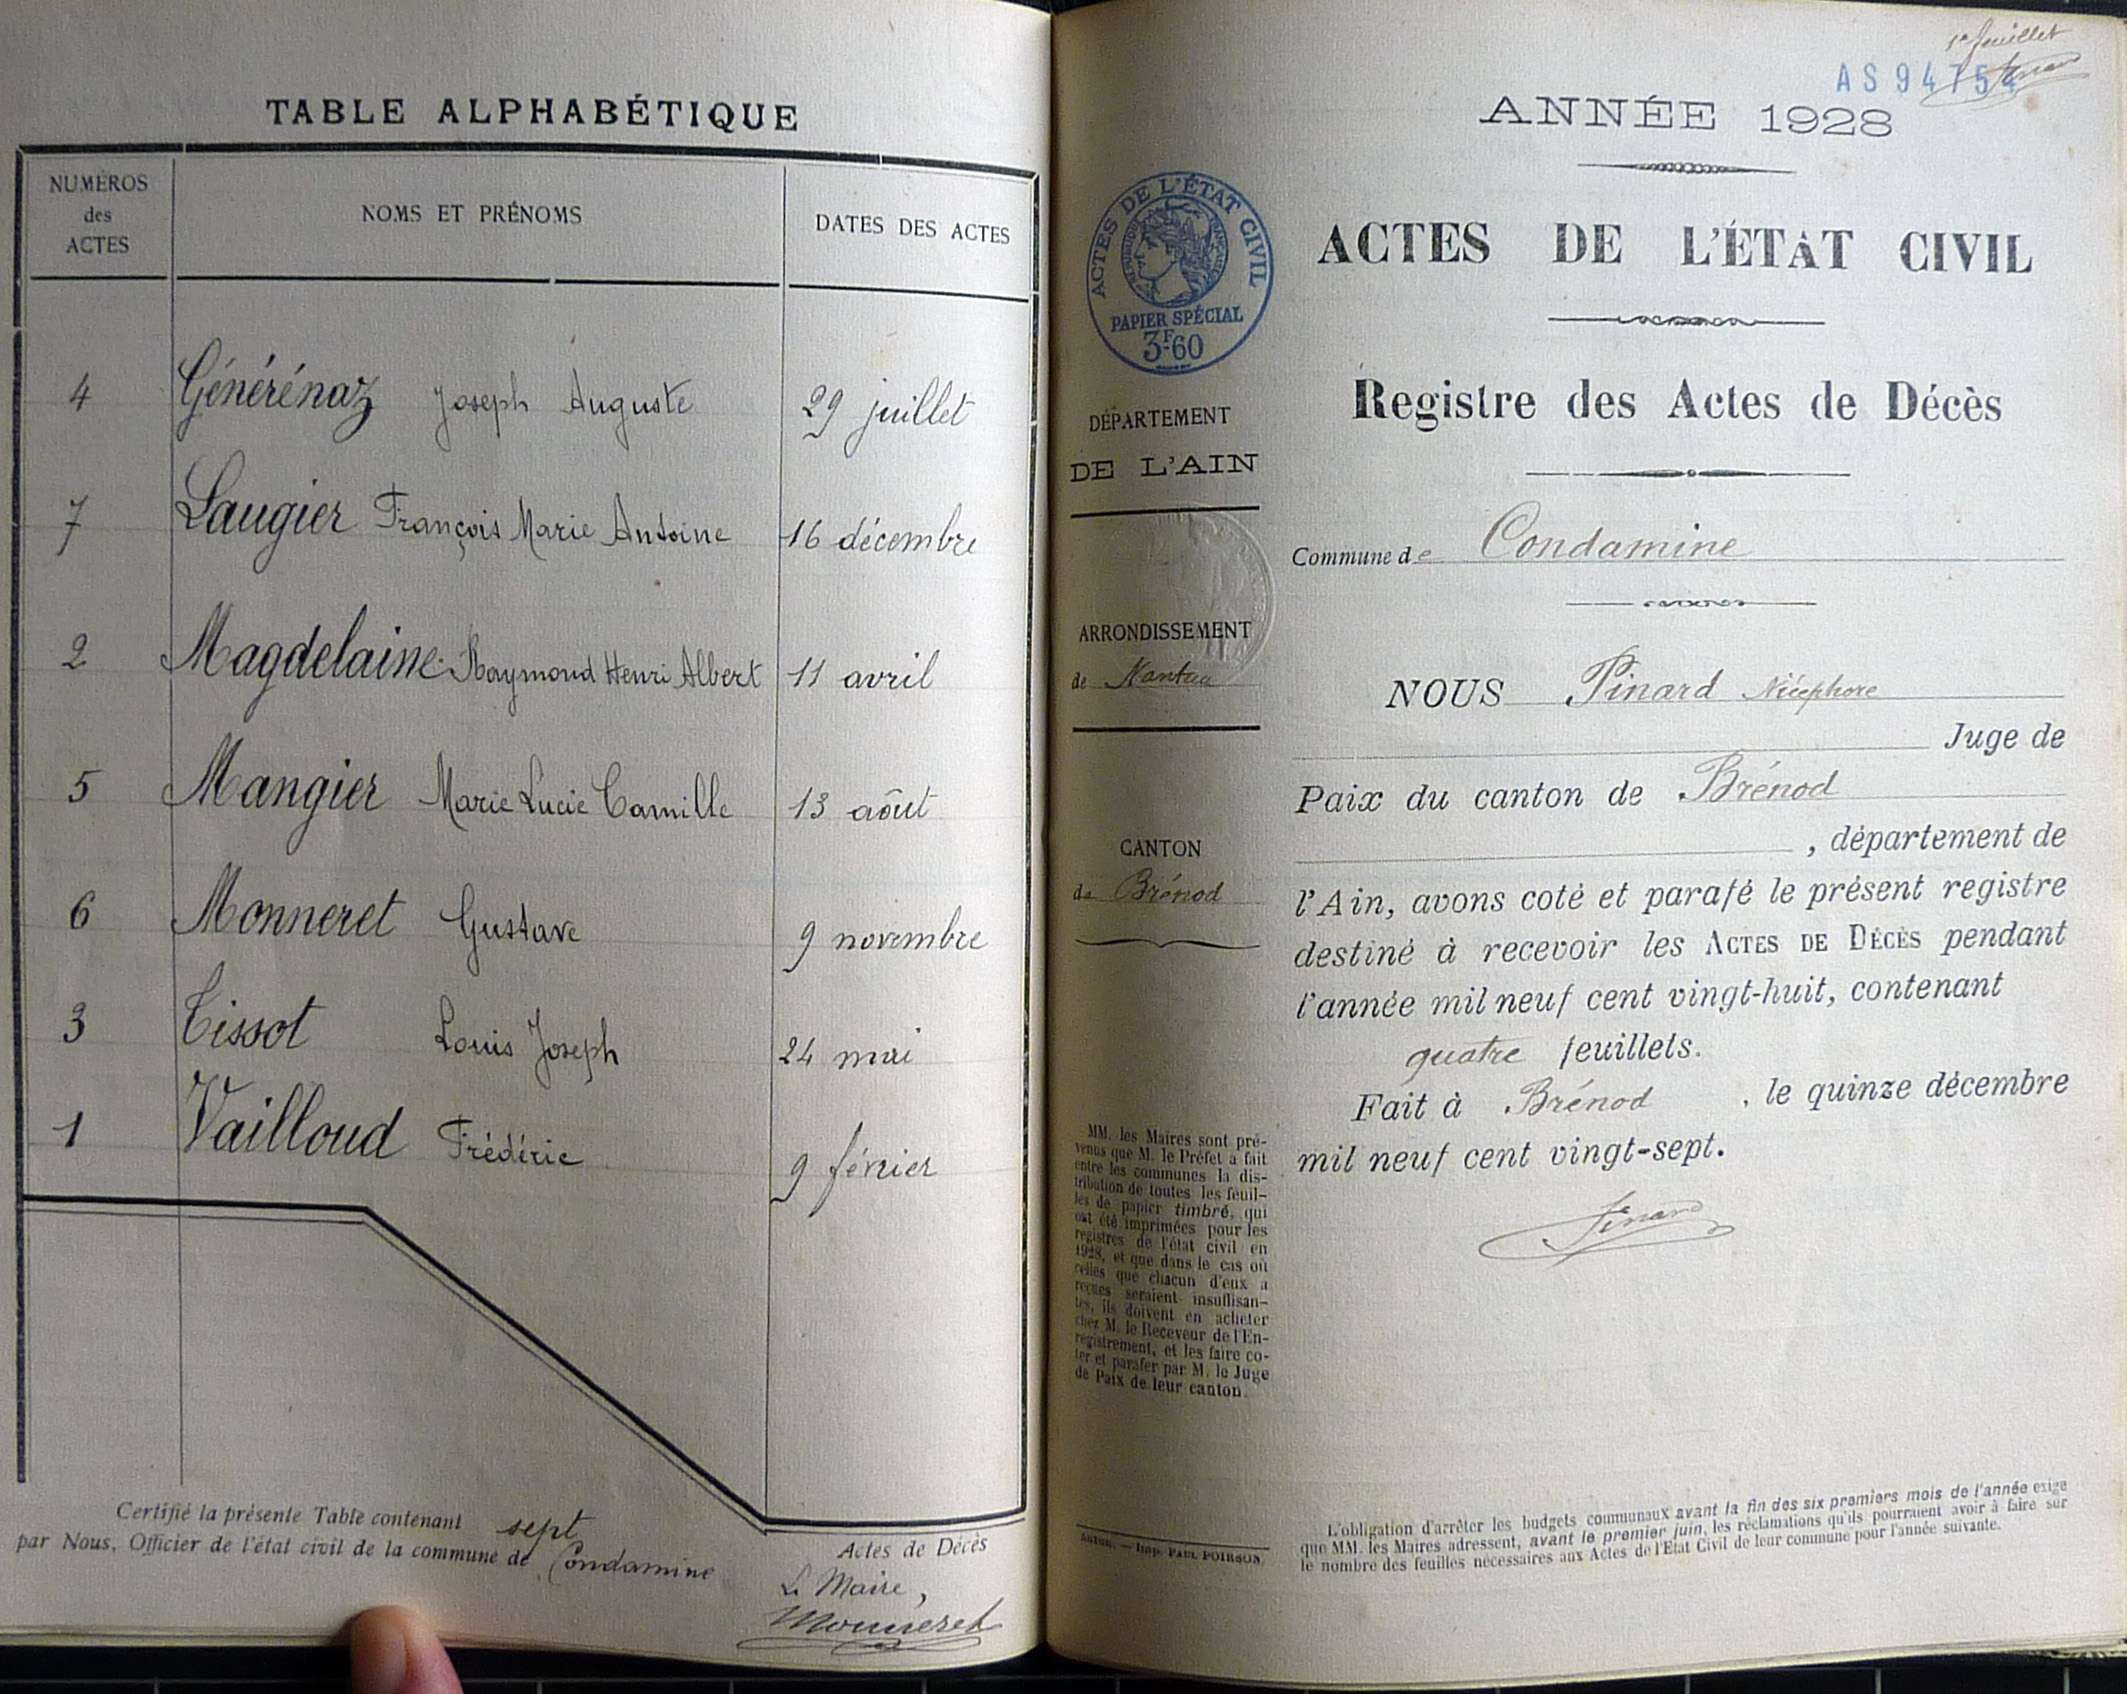 TABLE ALPHABÉTIQUE
NUMÉROS
des
ACTES
NOMS ET PRÉNOMS
DATES DES ACTES
4 Générénaz Joseph Auguste 29 juillet
7 Laugier François Marie Antoine 16 décembre
2 Magdelaine Raymond Henri Albert 11 avril
5 Mangier Marie Lucie Camille 13 aôut
6 Monneret Gustave 9 novembre
3 Tissot Louis Joseph 24 mai
1 Vailloud Frédéric 9 février
Certifié la présente Table contenant sept Actes de Décès
par Nous, Officier de l'état civil de la commune de Condamine
Le Maire,
Monneret
1er feuillet
Pinard
AS 94754
ANNÉE 1928
ACTES DE L'ÉTAT CIVIL
RÉPUBLIQUE FRANÇAISE
PAPIER SPÉCIAL
3F60
ACTES DE L'ÉTAT CIVIL
Registre des Actes de Décès
DÉPARTEMENT
DE L'AIN
ARRONDISSEMENT
de Nantua
CANTON
de Brénod
MM. les Maires sont pré-
venus que M. le Préfet a fait
entre les communes la dis-
tribution de toutes les feuil-
les de papier timbré, qui
ont été imprimées pour les
registres de l'état civil en
1928, et que dans le cas où
celles que chacun d'eux a
reçues seraient insuffisan-
tes, ils doivent en acheter
chez M. le Receveur de l'En-
registrement, et les faire co-
ter et parafer par M. le Juge
de Paix de leur canton.
Imp. PAUL POIRSON.
Commune de Condamine
NOUS Pinard Nicéphore
Juge de
Paix du canton de Brénod
, département de
l'Ain, avons coté et parafé le présent registre
destiné à recevoir les ACTES DE DÉCÈS pendant
l'année mil neuf cent vingt-huit, contenant
quatre feuillets.
Fait à Brénod , le quinze décembre
mil neuf cent vingt-sept.
Pinard
L'obligation d'arrêter les budgets communaux avant la fin des six premiers mois de l'année exige
que MM. les Maires adressent, avant le premier juin, les réclamations qu'ils pourraient avoir à faire sur
le nombre des feuilles nécessaires aux Actes de l'État Civil de leur commune pour l'année suivante.